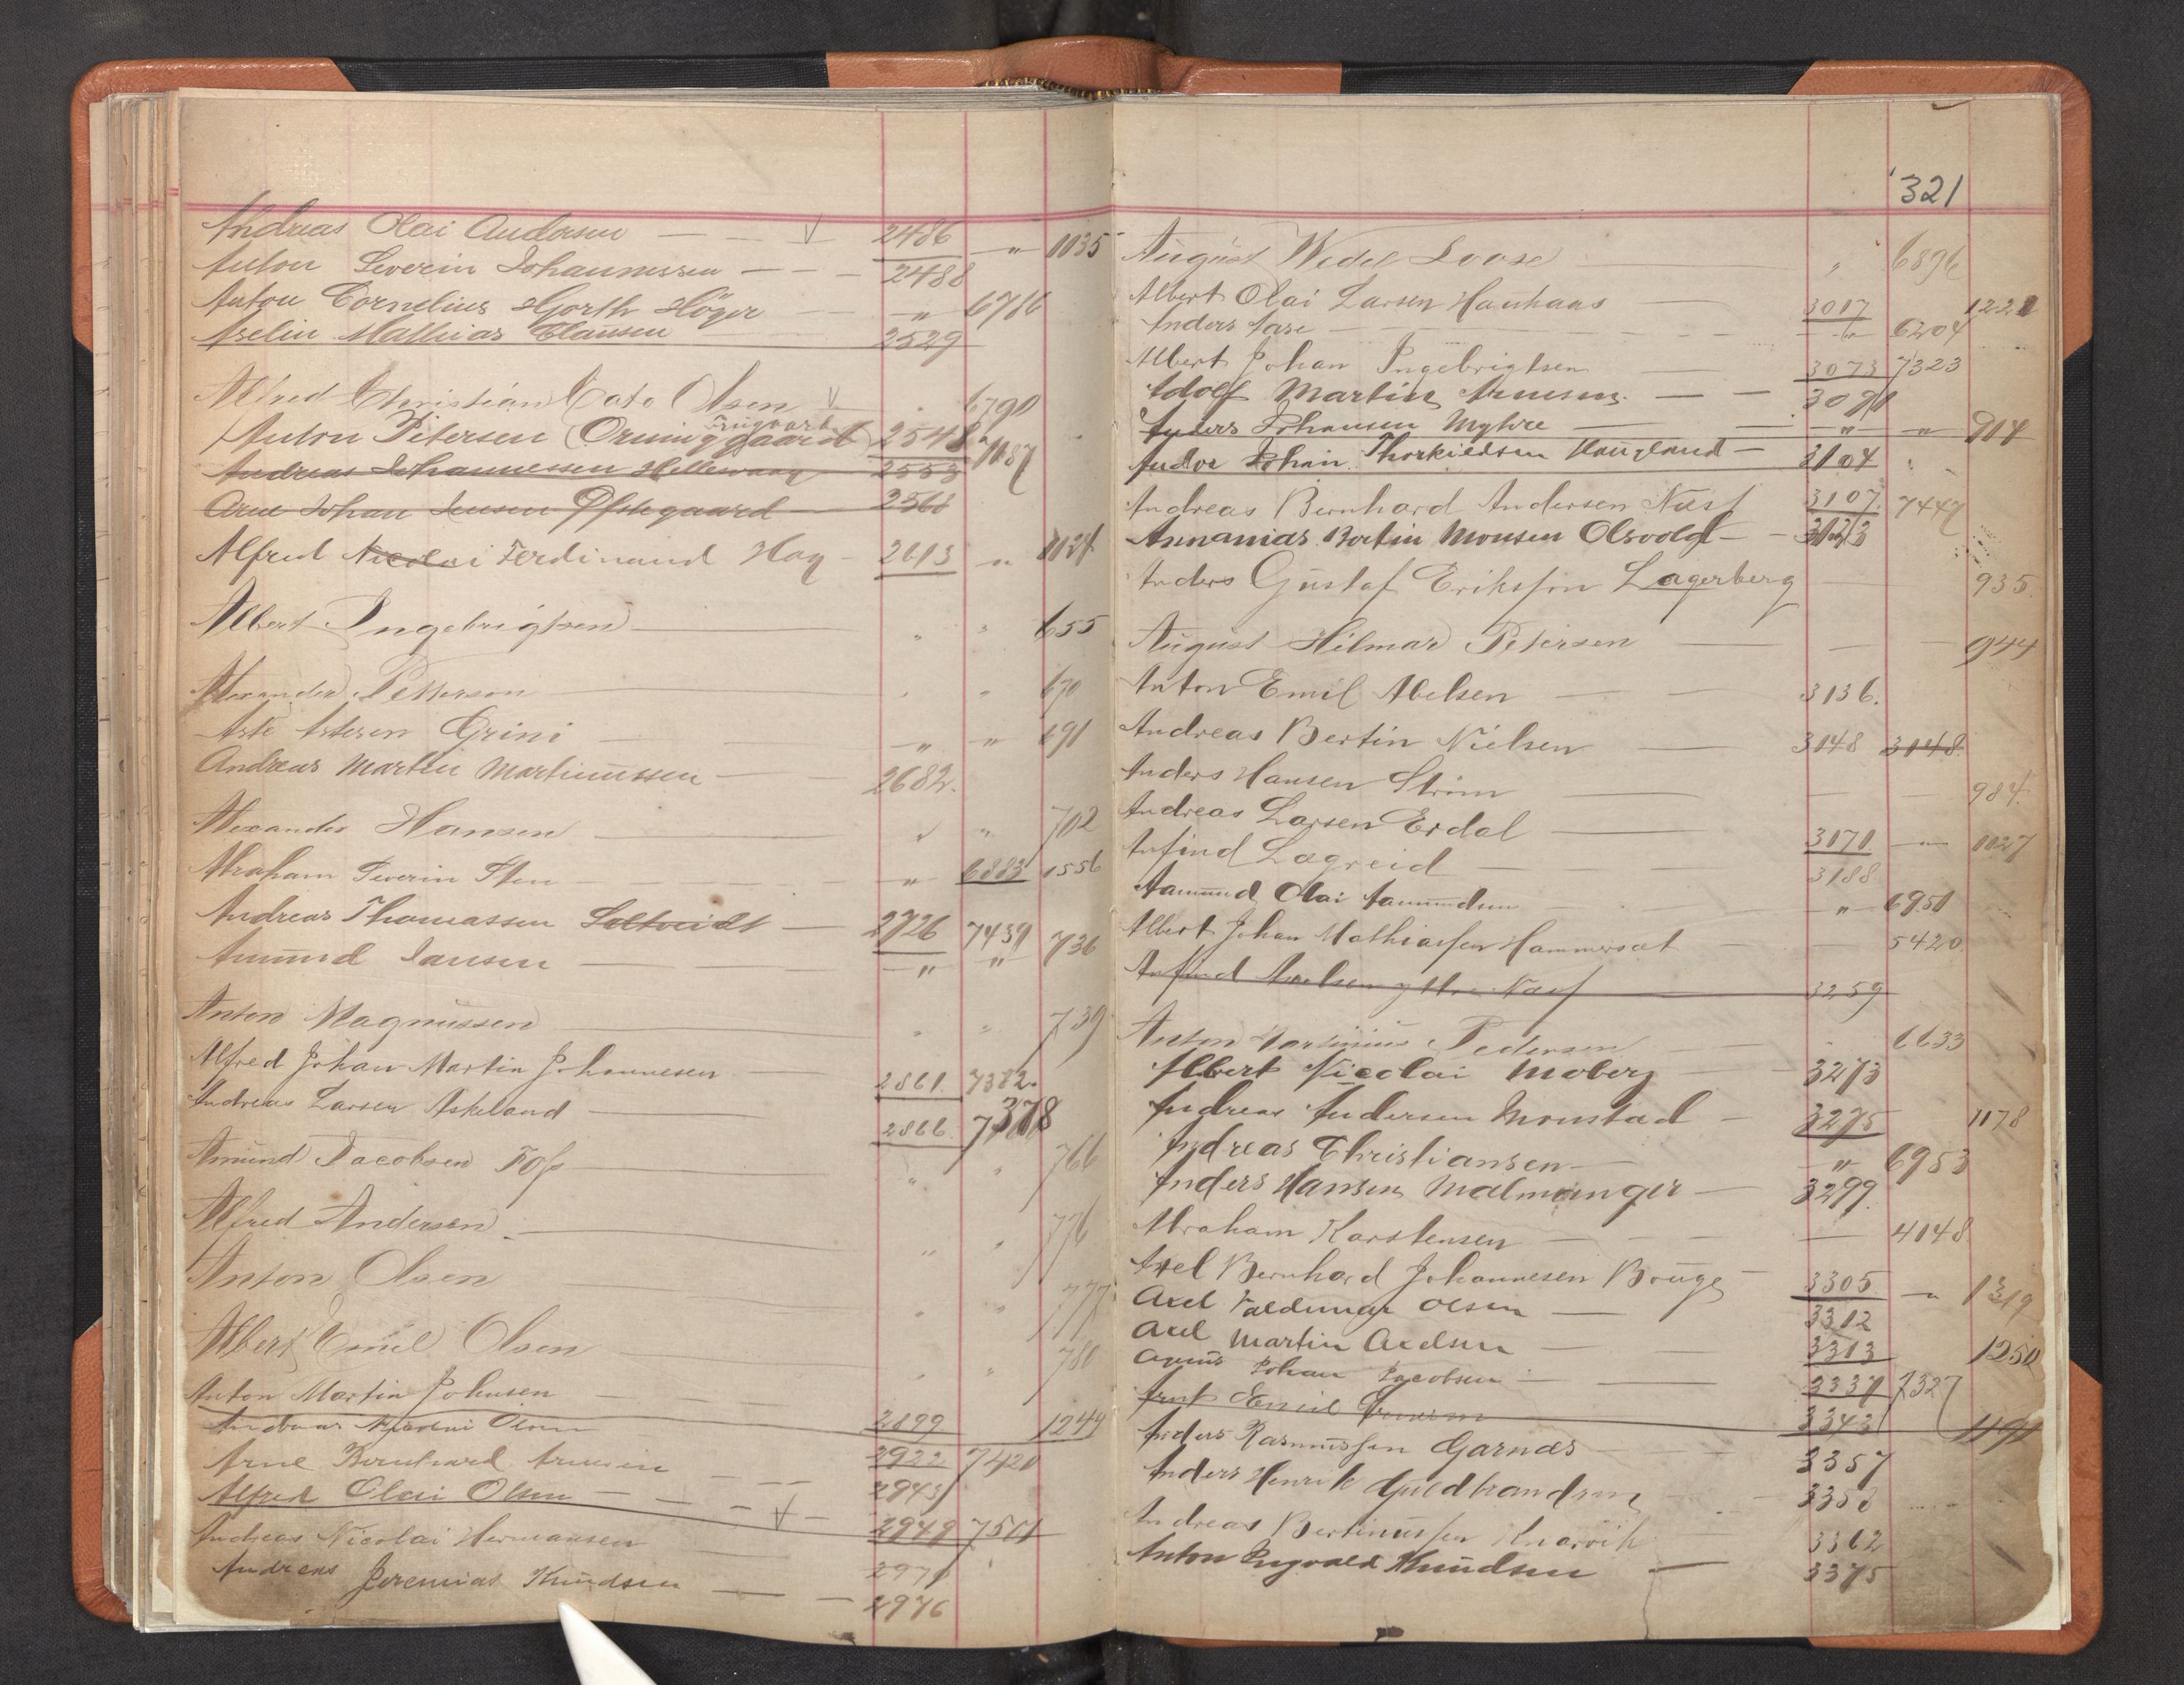 Andreas Olai Andersen — — V 2486 — " 1035
Anton Severin Johannessen — — — 2488
Anton Cornelius Hjorth Höyer — — " — 6786
Aselin Mathias Clausen 2529
Alfred Christian Cato Olsen V " 6790
Anton Petersen (Orninggaard) Trygvart 2548 " 1187
Andreas Johannessen Hellevaag 2553
Arne Johan Jensen Østegaard 2568
Alfred Nicolai Ferdinand Hag — 2613 " 1124
Albert Ingebrigtsen — " " 655
Alexander Petterson " " 670
Asle Aslesen Grini — — " — " — 691
Andreas Martin Martinussen — 2682.
Alexander Hansen — " " 702
Abraham Severin Sten — — — " — 6883 1556
Andreas Thomassen Soltveidt — 2726 7439 736
Amund Jansen — — — " — "
Anton Magnussen — " " 739
Alfred Johan Martin Johannesen — 2861. 7382.
Andreas Larsen Askeland — 2866. 7378
Amund Jacobsen Foss — " " 766
Alfred Andersen. — " " 776
Anton Olsen — " " 777
Albert Emil Olsen — " " 780
Anton Martin Johnsen — 2899 1244
Andreas Nicolai Olsen 2922 7420
Arne Bernhard Arnesen — — 2943
Alfred Olai Olsen — — — V — 2949 7511
Andreas Nicolai Hermansen 2971
Andreas Jeremias Knudsen — — 2976
321
August Wedel Loose " 6896
Albert Olai Larsen Hauhaus — 3017 1221
Anders Aase — — — " — 6204
Albert Johan Ingebrigtsen — 3073 7323
Adolf Martin Arnesen. — — 3091
Anders Johansen Myhre — — " — — " — 914
Andor Johan Thorkildsen Haugland — 3104
Andreas Bernhard Andersen Næss 3107. 7447
Annanias Bertin Monsen Olsvold — — 3123
Anders Gustaf Eriksson Lagerberg — — 935.
August Hilmar Petersen — — — 944
Anton Emil Abelsen — — 3136.
Andreas Bertin Nielsen — 3148 3148
Anders Hansen Strøm — — — 984.
Andreas Larsen Erdal — 3171. — " — 1027
Arfind Lægreid — 3188
Aamund Olai Aamundsen " — 6951
Albert Johan Mathiassen Hammersæt — — 5420.
Arfind Axelsen ytre Næss 3259
Anton Martinius Pedersen — 6633
Albert Nicolai Moberg — — 3273
Andreas Andersen Monstad — 3275 1178
Andreas Christiansen — — " — 6953
Anders Hansen Malmanger — 3299.
Abraham Karstensen — — — — 4148
Axel Bernhard Johannesen Bouge — 3305. — " 1319
Axel Valdemar Olsen — 3312
Axel Martin Axelsen — — 3313 1250
Johan Jacobsen — — 3337 7327
Arnt Emil 3343 1191
Anders Rasmussen Garnæs 3357
Anders Henrik Guldbrandsen — 3358
Andreas Bertinussen Knarvik 3362
Anton Ingvald Knudsen — 3375